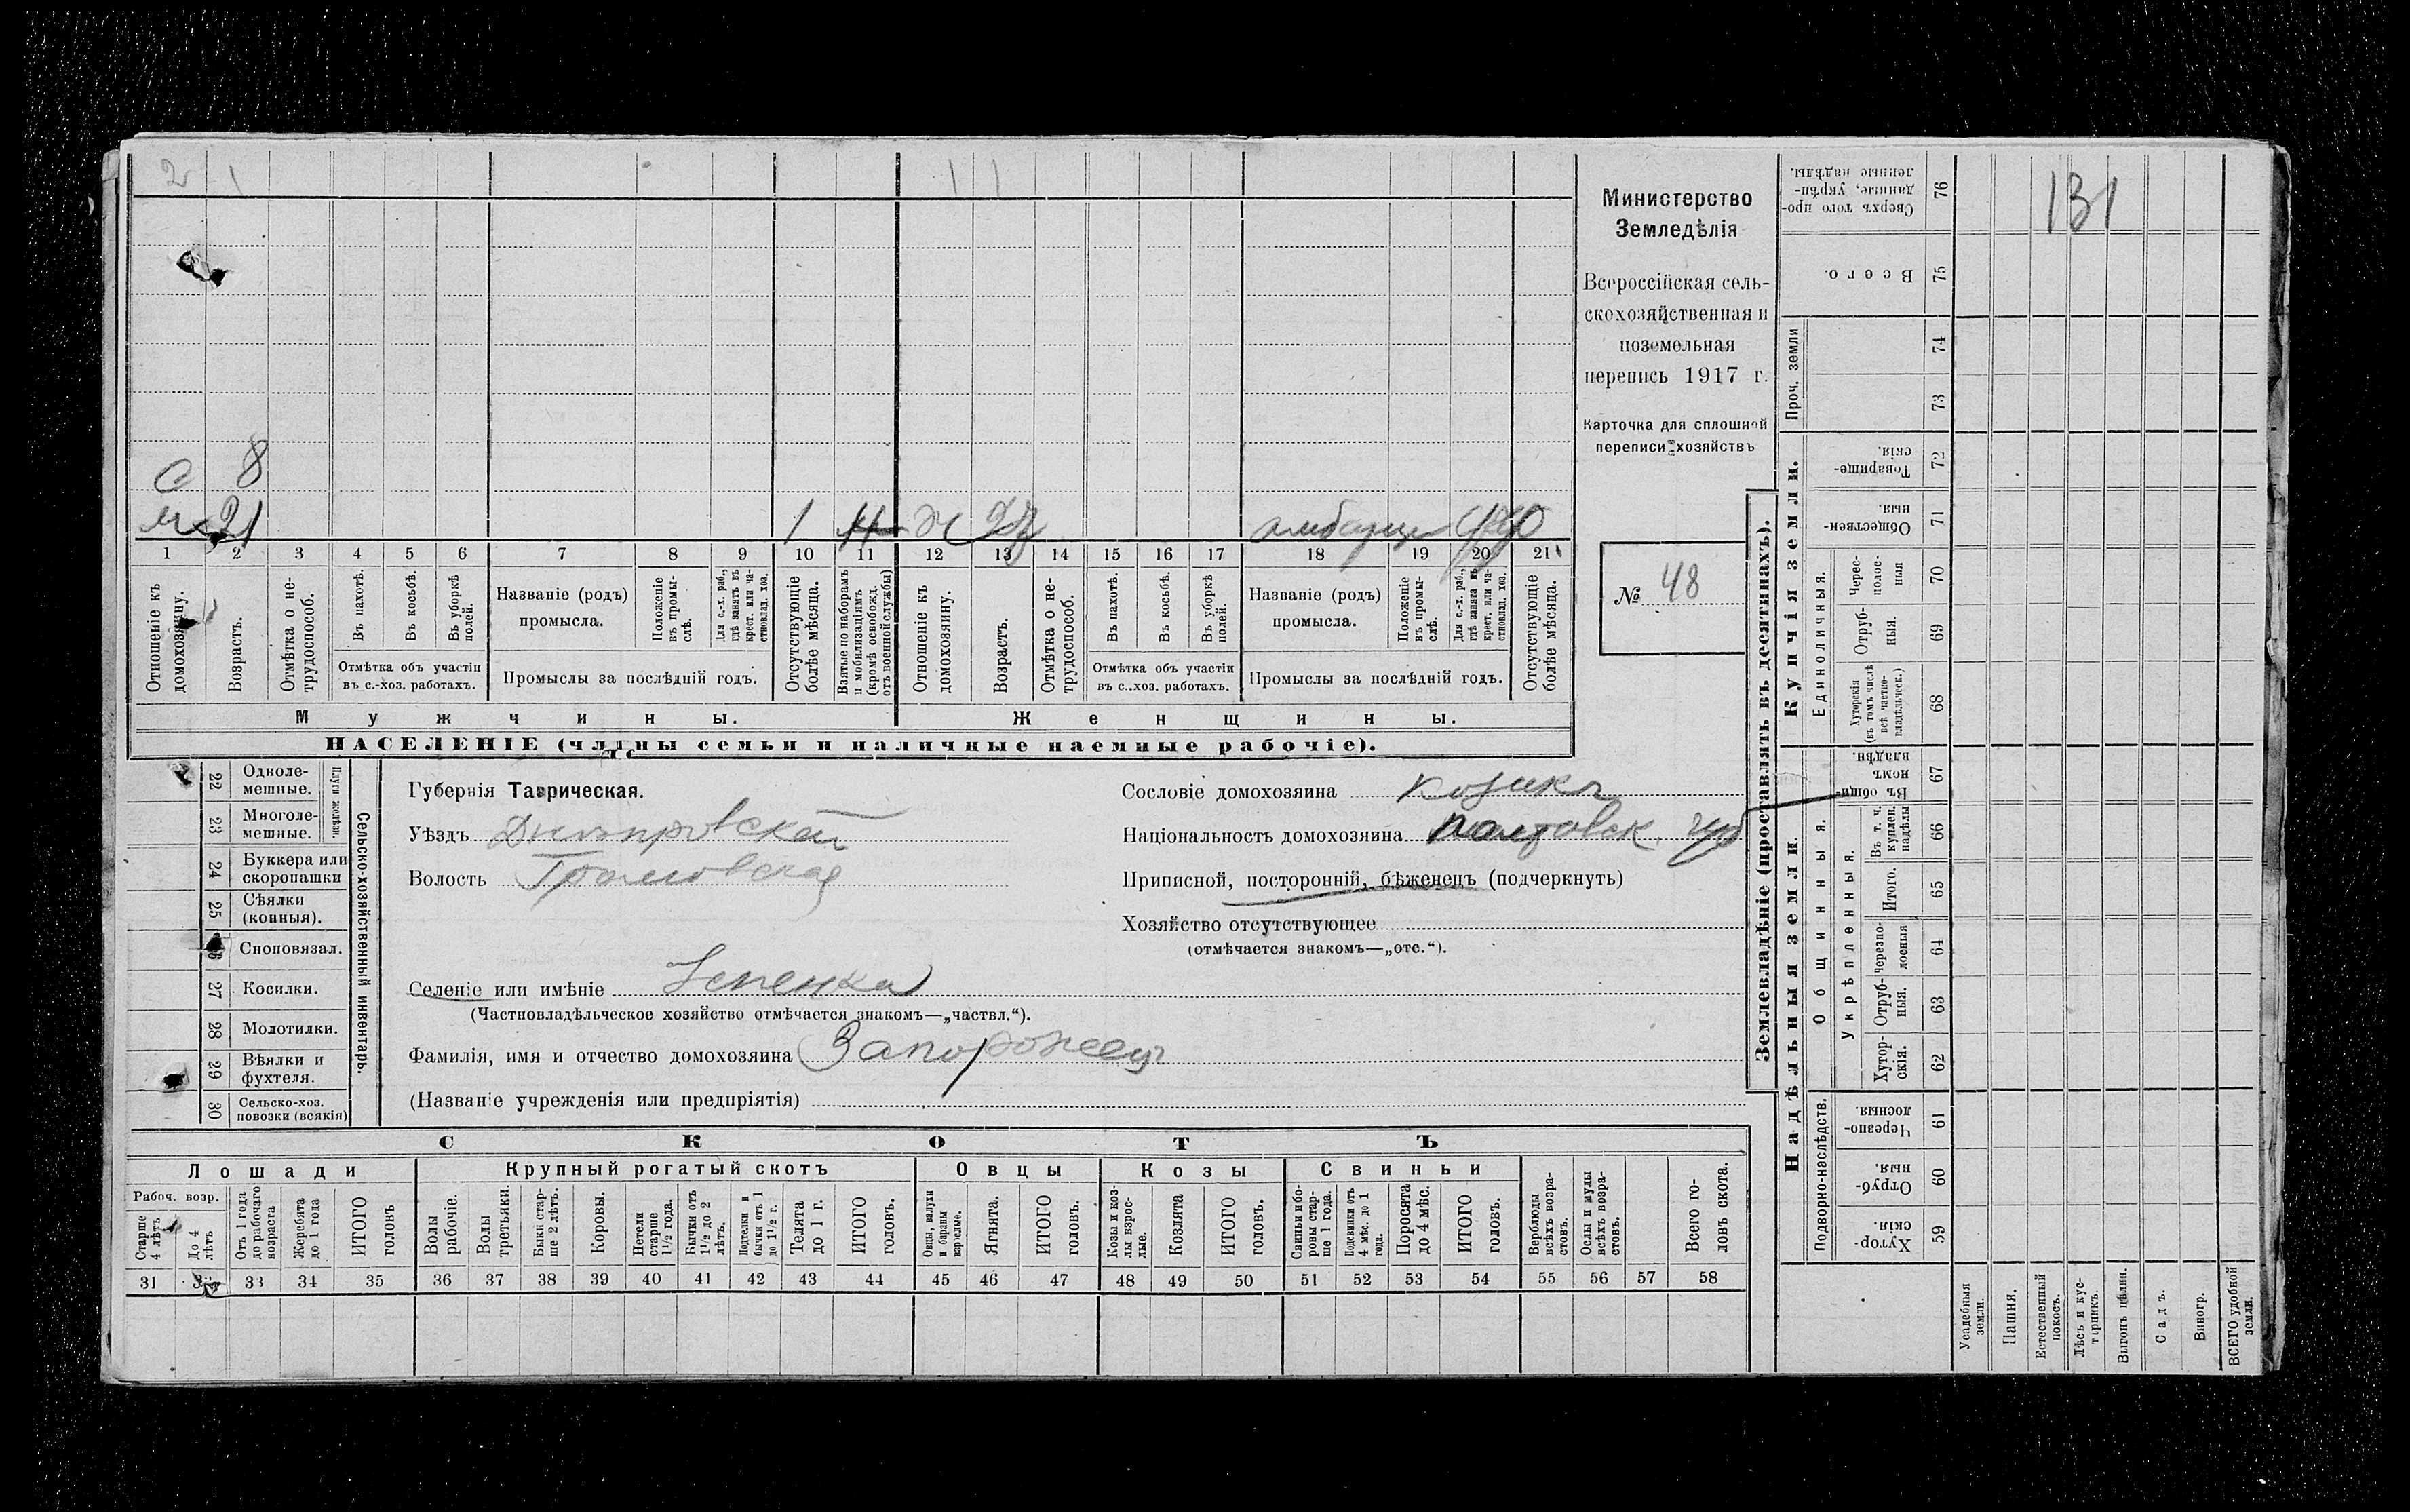 2 1 1 1
с 8
м 21 1 ж 27
1 2 3 4 5 6 7 8 9 10 11 12 13 14 15 16 17 18 19 20 21
Отношеніе къ домохозяину.
Возрастъ.
Отмѣтка о не-трудоспособ.
Въ пахотѣ.
Въ косьбѣ.
Въ уборкѣ полей.
Отмѣтка объ участіи
въ с.-хоз. работахъ.
Названіе (родъ)
промысла.
Положеніе въ промы-слѣ.
Для с.-х. раб., гдѣ занятъ въ крест. или ча-стновлад. хоз.
Промыслы за послѣдній годъ.
Отсутствующіе болѣе мѣсяца.
Взятые по наборамъ и мобилизаціямъ (кромѣ освобожд. отъ военной службы)
Отношеніе къ домохозяину.
Возрастъ.
Отмѣтка о не-трудоспособ.
Въ пахотѣ.
Въ косьбѣ.
Въ уборкѣ полей.
Отмѣтка объ участіи
въ с.-хоз. работахъ.
Названіе (родъ)
промысла.
Положеніе въ промы-слѣ.
Для с.-х. раб., гдѣ занята въ крест. или ча-стновлад. хоз.
Промыслы за послѣдній годъ.
Отсутствующіе болѣе мѣсяца.
Мужчины.
Женщины.
НАСЕЛЕНІЕ (члены семьи и наличные наемные рабочіе).
Министерство
Земледѣлія
Всероссійская сель-
скохозяйственная и
поземельная
перепись 1917 г.
Карточка для сплошной
переписи хозяйствъ
№ 48
22 Одноле-мешные.
23 Многоле-мешные.
Плуги желѣзн.
24 Буккера или скоропашки
25 Сѣялки (конныя).
26 Сноповязал.
27 Косилки.
28 Молотилки.
29 Вѣялки и фухтеля.
30 Сельско-хоз. повозки (всякія)
Сельско-хозяйственный инвентарь.
Губернія Таврическая.
Уѣздъ Днѣпровскій
Волость
Селеніе или имѣніе Успенка
(Частновладѣльческое хозяйство отмѣчается знакомъ—„частвл.“).
Фамилія, имя и отчество домохозяина Запорожецъ
(Названіе учрежденія или предпріятія)
Сословіе домохозяина козакъ
Національность домохозяина Полтовск. губ
Приписной, посторонній, бѣженецъ (подчеркнуть)
Хозяйство отсутствующее
(отмѣчается знакомъ—„отс.“).
СКОТЪ
Лошади Крупный рогатый скотъ Овцы Козы Свиньи
Рабоч. возр.
Старше 4 лѣтъ
До 4 лѣтъ
Отъ 1 года до рабочаго возраста
Жеребята до 1 года
ИТОГО головъ
Волы рабочіе.
Волы третьяки.
Быки стар-ше 2 лѣтъ.
Коровы.
Нетели старше 1½ года.
Бычки отъ 1½ до 2 лѣтъ.
Подтелки и бычки отъ 1 до 1½ г.
Телята до 1 г.
ИТОГО головъ.
Овцы, валухи и бараны взрослые.
Ягнята.
ИТОГО головъ.
Козы и коз-лы взрос-лые.
Козлята
ИТОГО головъ.
Свиньи и бо-ровы стар-ше 1 года.
Подсвинки отъ 4 мѣс. до 1 года.
Поросята до 4 мѣс.
ИТОГО головъ.
Верблюды всѣхъ возра-стовъ.
Ослы и мулы всѣхъ возра-стовъ.
Всего го-ловъ скота.
31 32 33 34 35 36 37 38 39 40 41 42 43 44 45 46 47 48 49 50 51 52 53 54 55 56 57 58
Землевладѣніе (проставлять въ десятинахъ).
131
Сверхъ того про-данные, укрѣп-ленные надѣлы. 76
Всего. 75
Проч. земли
74
73
Купчія земли.
Товарище-скія. 72
Обществен-ныя 71
Единоличныя.
Черес-полос-ныя 70
Отруб-ныя. 69
Хуторскія (въ томъ числѣ всѣ частно-владѣльческ.) 68
Надѣльныя земли.
Общинныя.
Въ общин-номъ владѣн. 67
Укрѣпленныя.
Въ т. ч. куплен. надѣлы 66
Итого. 65
Черезпо-лосныя 64
Отруб-ныя. 63
Хутор-скія. 62
Подворно-наслѣдств.
Черезпо-лосныя. 61
Отруб-ныя. 60
Хутор-скія 59
Усадебныя земли.
Пашня.
Естественный покосъ.
Лѣсъ и кус-тарникъ.
Выгонъ цѣлин.
Садъ.
Виногр.
ВСЕГО удобной земли.